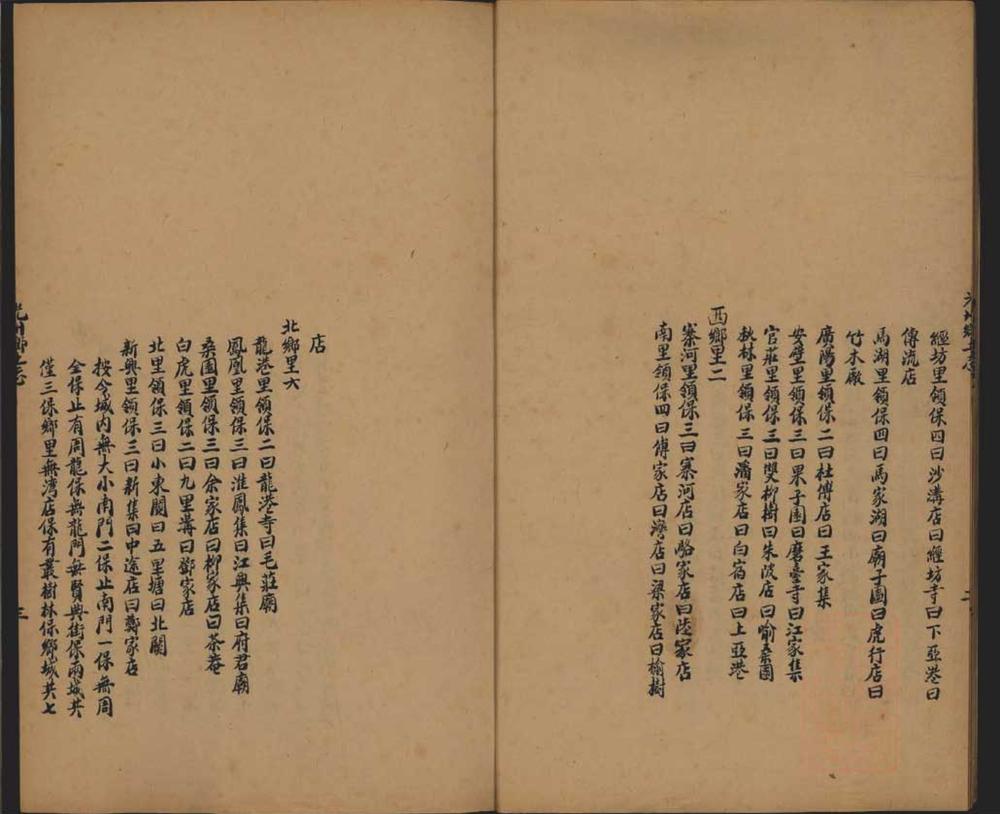 經坊里領保四曰沙溝店曰經坊寺曰下亞港曰
傳流店
馬湖里領保四曰馬家湖曰廟子園曰虎行店曰
竹木廠
廣陽里領保二曰杜傅店曰王家集
安壁里領保三曰果子園曰磨臺寺曰江家集
官莊里領保三曰雙柳樹曰朱波店曰喻家園
秋林里領保三曰潘家店曰白宿店曰上亞港
西鄉里二
寨河里領保三曰寨河店曰駱家店曰陸家店
南里領保四曰傅家店曰灣店曰梁家店曰榆樹
店
北鄉里六
龍港里領保二曰龍港寺曰毛莊廟
鳳凰里領保三曰淮鳳集曰江興集曰府君廟
桑園里領保三曰余家店曰柳家店曰茶菴
白虎里領保二曰九里溝曰鄧家店
北里領保三曰小東關曰五里塘曰北關
新興里領保三曰新集曰中途店曰鄭家店
按今城內無大小南門二保止南門一保無周
全保止有周龍保無龍門無賢興街保兩城共
僅三保鄉里無灣店保有叢樹林保鄉城共七
三